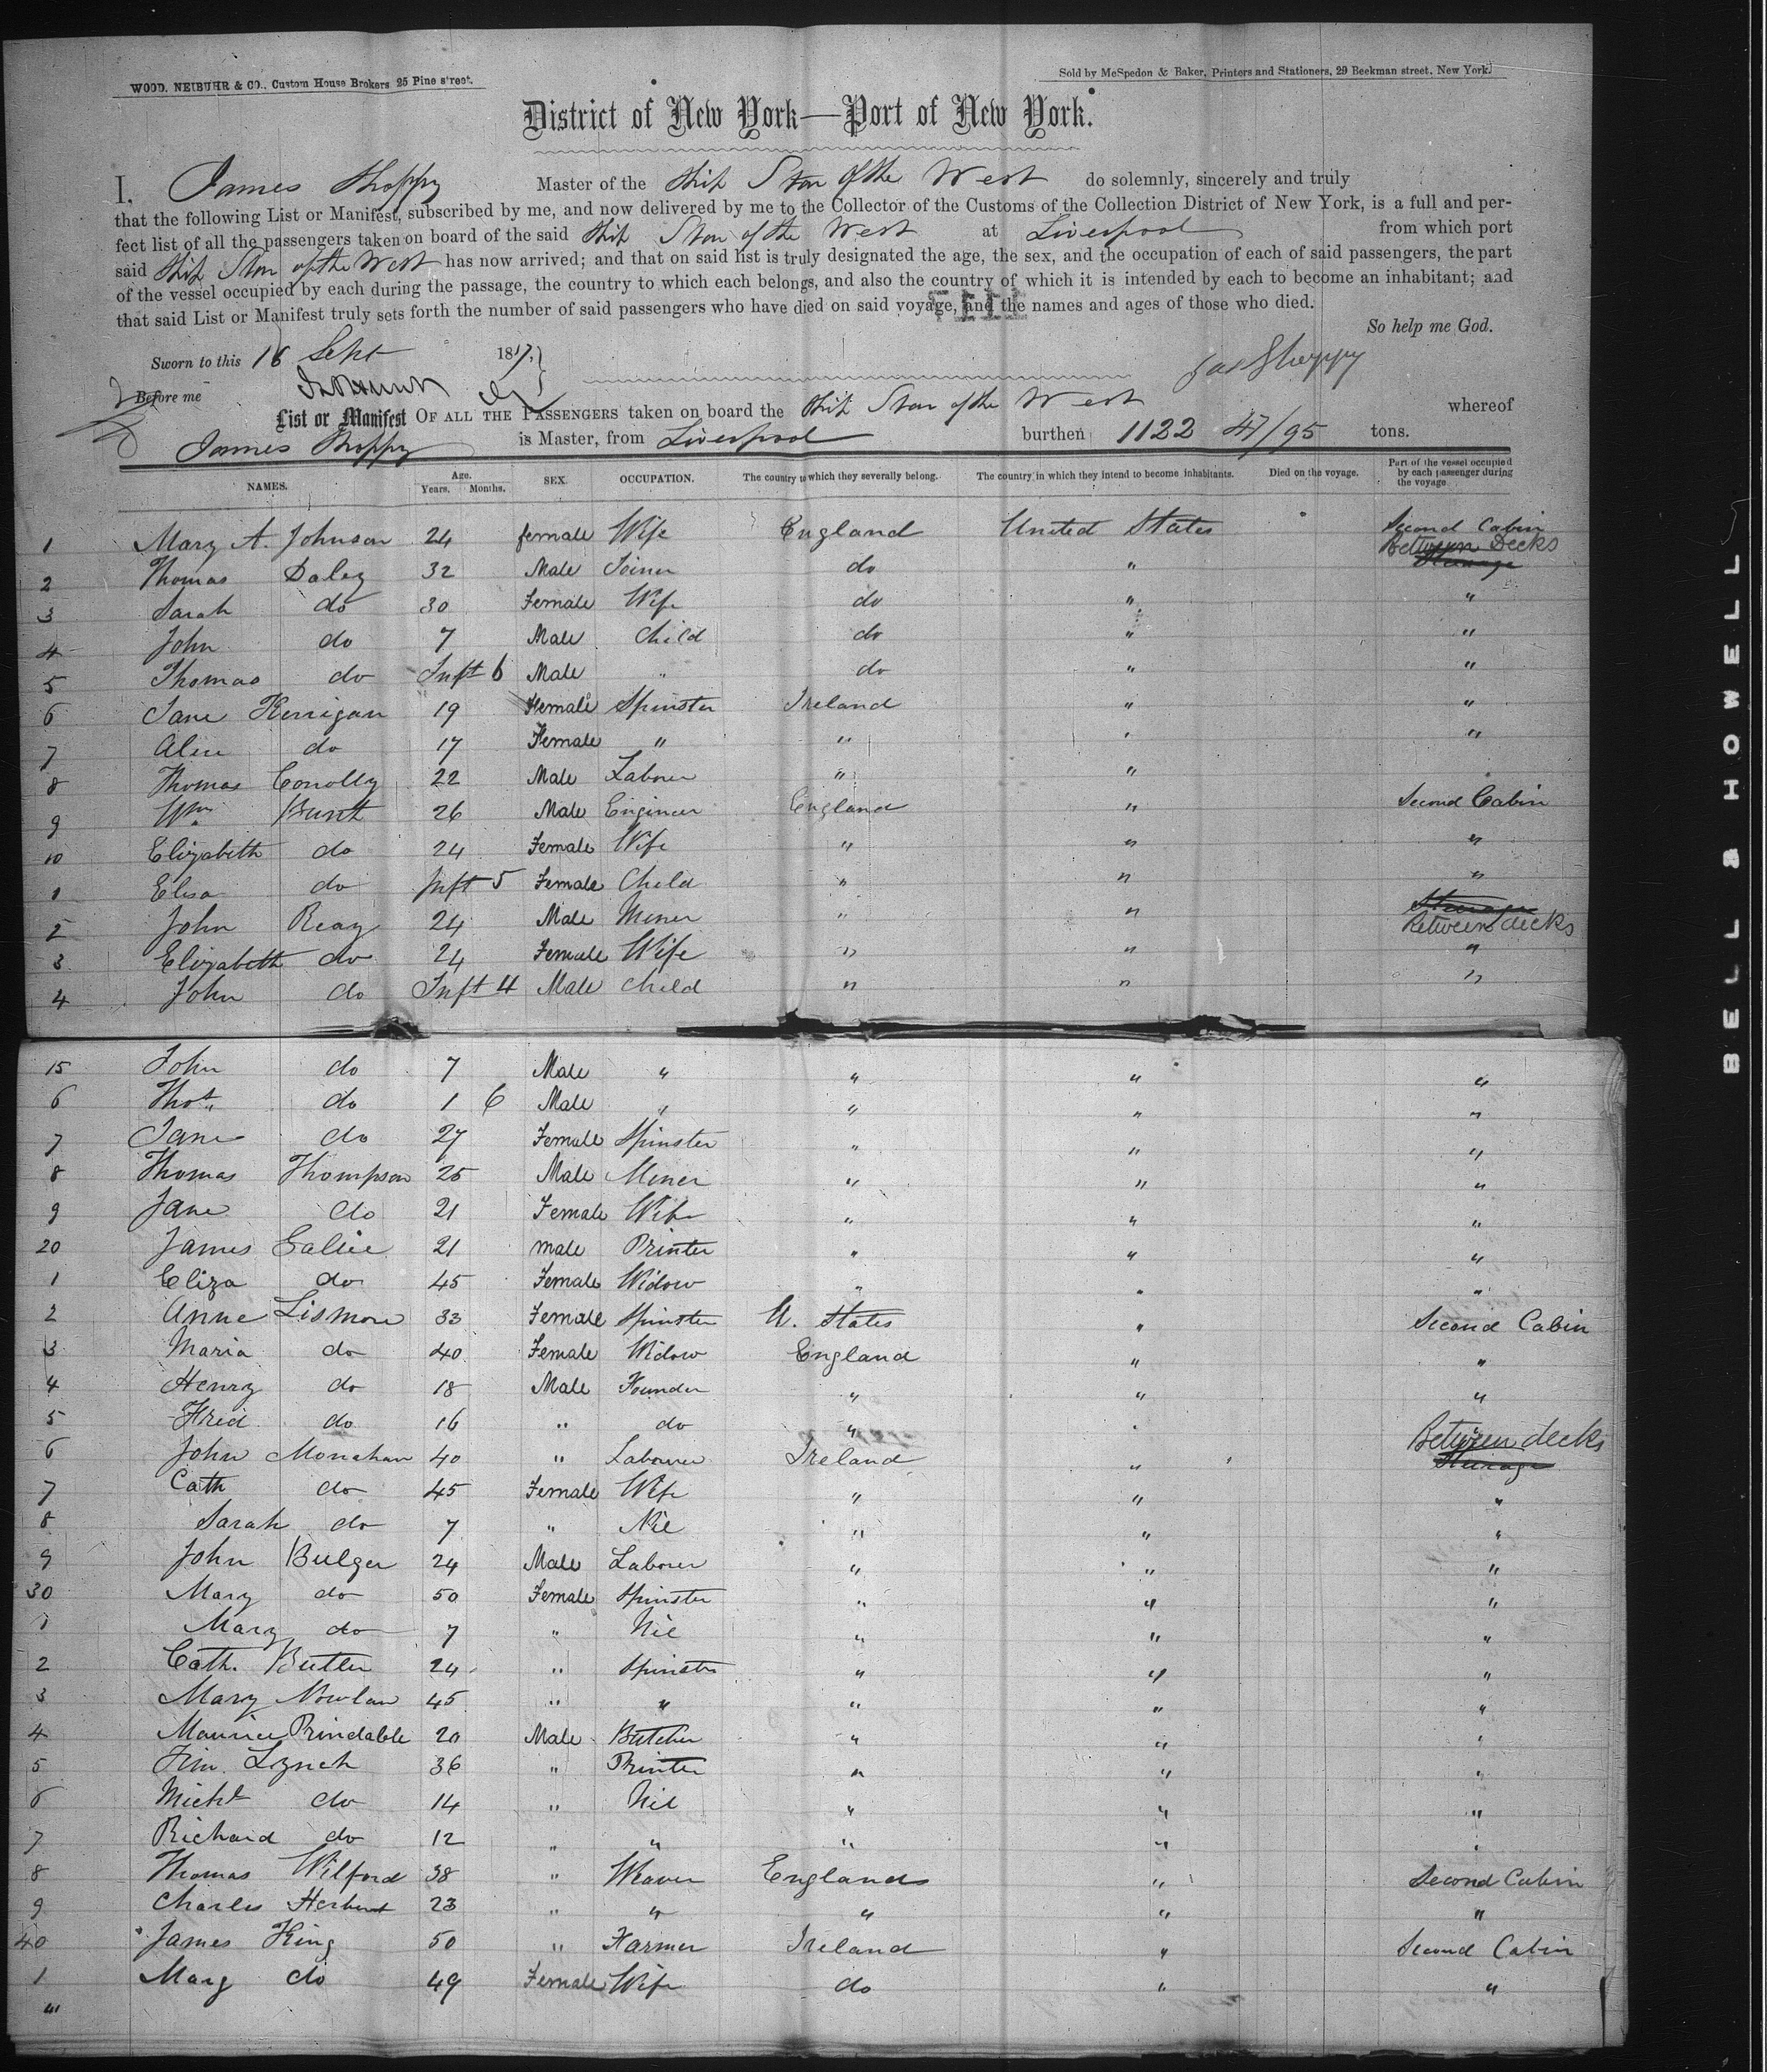 WOOD. NEIBUHR & CO., Custom House Brokers 25 Pine street.
Sold by McSpedon & Baker, Printers and Stationers, 29 Beekman street, New York.
District of New York—Port of New York.
I, James Shoppy Master of the Ship Star of the West do solemnly, sincerely and truly
that the following List or Manifest, subscribed by me, and now delivered by me to the Collector of the Customs of the Collection District of New York, is a full and per-
fect list of all the passengers taken on board of the said Ship Star of the West at Liverpool from which port
said Ship Star of the West has now arrived; and that on said list is truly designated the age, the sex, and the occupation of each of said passengers, the part
of the vessel occupied by each during the passage, the country to which each belongs, and also the country of which it is intended by each to become an inhabitant; and
that said List or Manifest truly sets forth the number of said passengers who have died on said voyage, and the names and ages of those who died.
So help me God.
Sworn to this 16 Sept 1857.
Jas Shoppy
Before me
List or Manifest OF ALL THE PASSENGERS taken on board the Ship Star of the West whereof
James Shoppy is Master, from Liverpool burthen 1122 47/95 tons.
NAMES. Age. Years. Months. SEX. OCCUPATION. The country to which they severally belong. The country in which they intend to become inhabitants. Died on the voyage. Part of the vessel occupied by each passenger during the voyage
1 Mary A. Johnson 24 female Wife England United States Second Cabin
2 Thomas Daley 32 Male Joiner do " Between Decks Steerage
3 Sarah do 30 Female Wife do " "
4 John do 7 Male Child do " "
5 Thomas do Inft 6 Male " do " "
6 Jane Kerrigan 19 Female Spinster Ireland " "
7 Alice do 17 Female " " " "
8 Thomas Conolly 22 Male Labourer " "
9 Wm Bunt 26 Male Engineer England " Second Cabin
10 Elizabeth do 24 Female Wife " " "
1 Elisa do Inft 5 Female Child " " "
2 John Reay 24 Male Miner " " Steerage Between decks
3 Elizabeth do 24 Female Wife " " "
4 John do Inft 4 Male Child " " "
15 John do 7 Male " " " "
6 Thos do 1 6 Male " " " "
7 Jane do 27 Female Spinster " " "
8 Thomas Thompson 25 Male Miner " " "
9 Jane do 21 Female Wife " " "
20 James 21 male Printer " " "
1 Eliza do 45 Female Widow " " "
2 Anne Lismore 33 Female Spinster U. States " Second Cabin
3 Maria do 40 Female Widow England " "
4 Henry do 18 Male Founder " " "
5 Fred do 16 " do " "
6 John Monahan 40 " Labourer Ireland " Between decks Steerage
7 Cath do 45 Female Wife " " "
8 Sarah do 7 " Nil " " "
9 John Bulger 24 Male Labourer " " "
30 Mary do 50 Female Spinster " " "
1 Mary do 7 " Nil " " "
2 Cath. Butler 24 " Spinster " " "
3 Mary Nowlan 45 " " " " "
4 Maurice Prindable 20 Male Butcher " " "
5 Tim. Lynch 36 " Printer " " "
6 Michl do 14 " Nil " " "
7 Richard do 12 " " " " "
8 Thomas Wilford 38 " Weaver England " Second Cabin
9 Charles Herbert 23 " " " " "
40 James King 50 " Farmer Ireland " Second Cabin
1 Mary do 49 Female Wife do " "
BELL & HOWELL